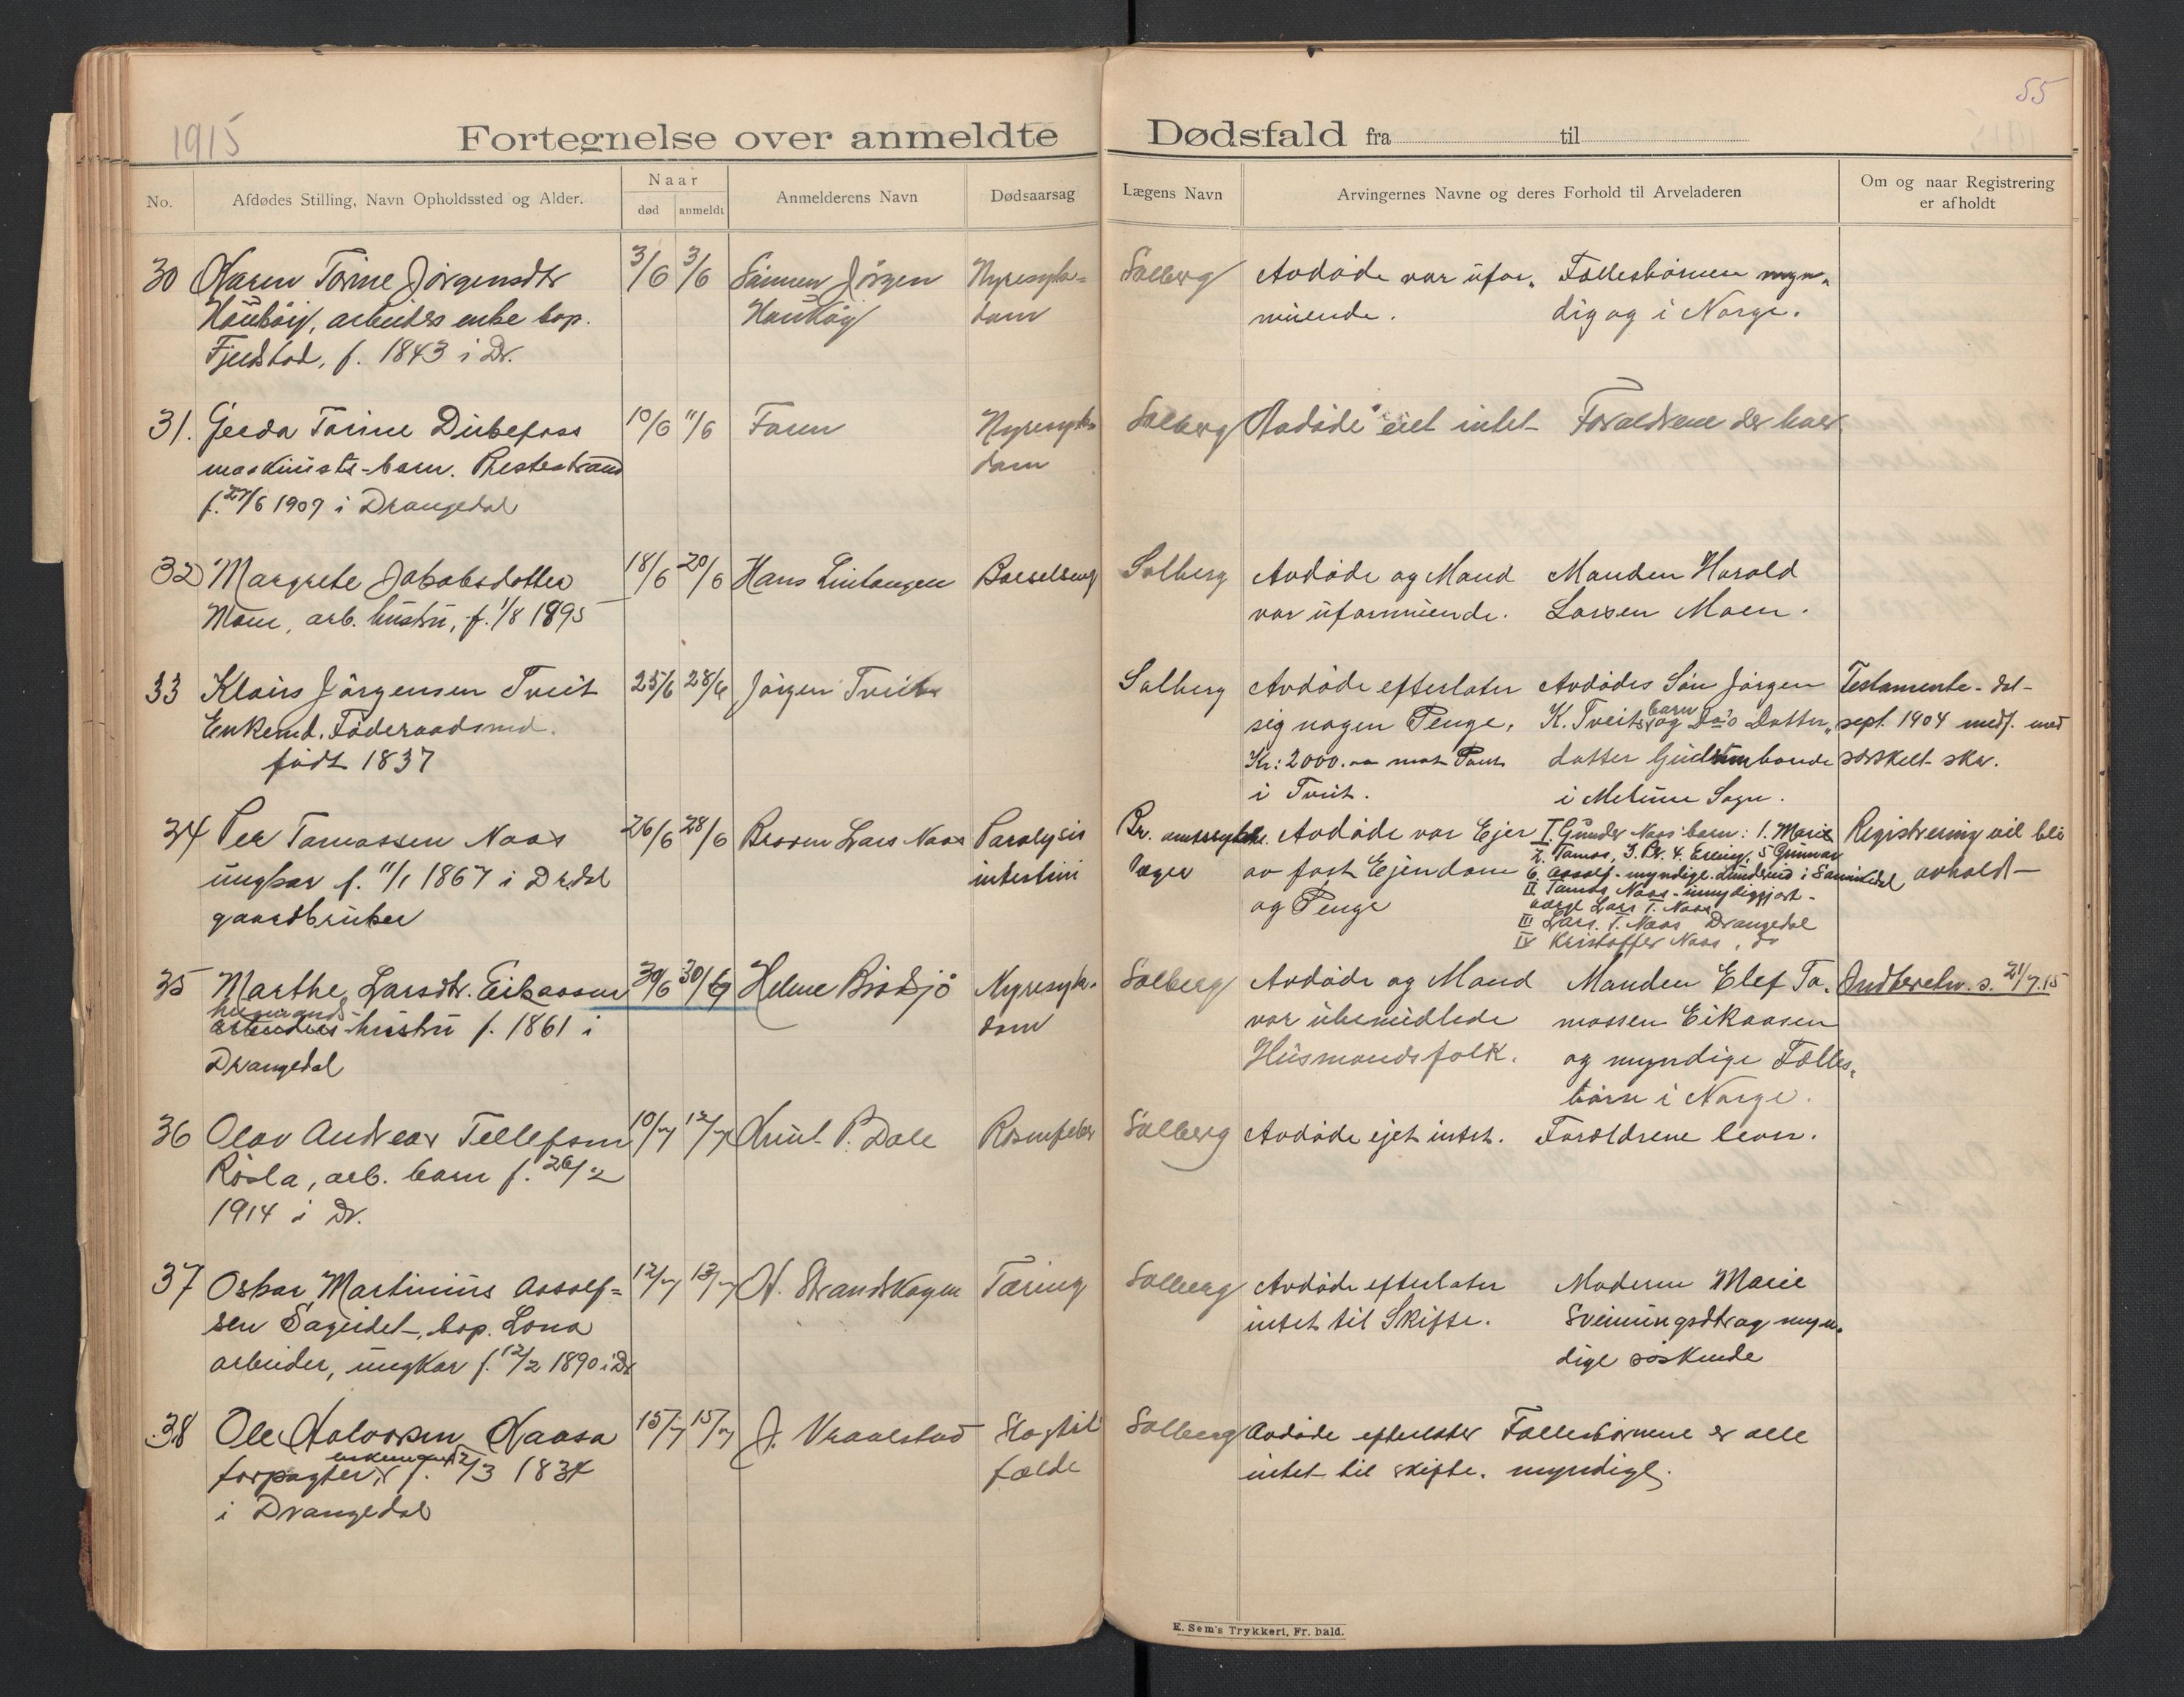 55
1915
Fortegnelse over anmeldte Dødsfald fra til
No.
Afdødes Stilling, Navn Opholdssted og Alder.
Naar
død anmeldt
Anmelderens Navn
Dødsaarsag
Lægens Navn
Arvingernes Navne og deres Forhold til Arveladeren
Om og naar Registrering
er afholdt
30 Karen Torine Jörgensdtr 3/6 3/6 Sönnen Jörgen Nyresyke= Solberg Avdöde var ufor„ Fællesbörnene myn„
Hauköig, arbeiders enke bop. Haukög dom muende. dig og i Norge.
f. 1843 i Dr.
31. Gerda Torine Dubefoss 10/6 11/6 Faren Nyresyke= Solberg Avdöde eiet intet Foraldrene der lever
maskinists-barn. Prestestrand dom
f. 27/6 1909 i Drangedal
32 Margrete Jakobsdotter 18/6 20/6 Hans Barselseng Solberg Avdöde og Mand Manden Harald
Moen, arb. hustru, f. 1/8 1895 var uformuende. Larsen Moen.
33 Klaus Jörgensen Tveit 25/6 28/6 Jörgen Tveit Solberg Avdöde efterlater Avdödes Sön Jörgen Testamente - dat-
Enkemd. Föderaadsmd. sig nogen Penge, K. Tveits barn og Do's Datter„ sept. 1904 medf. med
födt 1837 Kr: 2000.00 mot Pant datter boende særskilt skr.
i Tveit. i Melum Sogn.
34 Per Tamassen Naas 26/6 28/6 Broren Lars Naas Paralysis Br. amtssykehs. Avdöde var Ejer I. Gunder Naas barn: 1. Marie Registrering vil bli
ungkar f. 11/1 1867 i Drdal intestini læger av fast Ejendom 2. Tamas, 3. Br. 4. Erling, 5 Gunnar avholdt
gaardbruker og Penge 6. Aasolf - myndige. Lundereid i Sannikedal
II Tamas Naas - umyndiggjort -
værge Lars T. Naas
III Lars. T. Naas Drangedal
IV Kristoffer Naas, do
35 Marthe Larsdtr. Eikaasen 30/6 30/6 Helene Brödsjö Nyresyke- Solberg Avdöde og Mand Manden Elef Ta„ s. 21/7.15
husmands-
arbeiders hustru f. 1861 i dom var ubemidlede massen Eikaasen
Drangedal Husmandsfolk. og myndige Fælles„
börn i Norge.
36 Olav Andreas Tellefsen 10/7 12/7 Knut P. Dale Rosenfeber Solberg Avdöde ejet intet. Forældrene lever.
Rösla, arb. barn f. 26/2
1914 i Dr.
37 Oskar Martinius Aasolf= 12/7 13/7 N. Strandskogen Tæring Solberg Avdöde efterlater Moderen Marie
sen Sageidet, bop. Lona intet til Skifte. Sveinungsdtr og myn„
arbeider, ungkar f. 12/2 1890 i Dr dige söskende
38 Ole Halvorsen Kaasa 15/7 15/7 J. Vraalstad Slagtil Solberg Avdöde efterlater Fællesbörnene er alle
enkemand
forpagter, f. 12/3 1834 fælde intet til skifte. myndige.
i Drangedal
E. Sem's Trykkeri, Fr. hald.